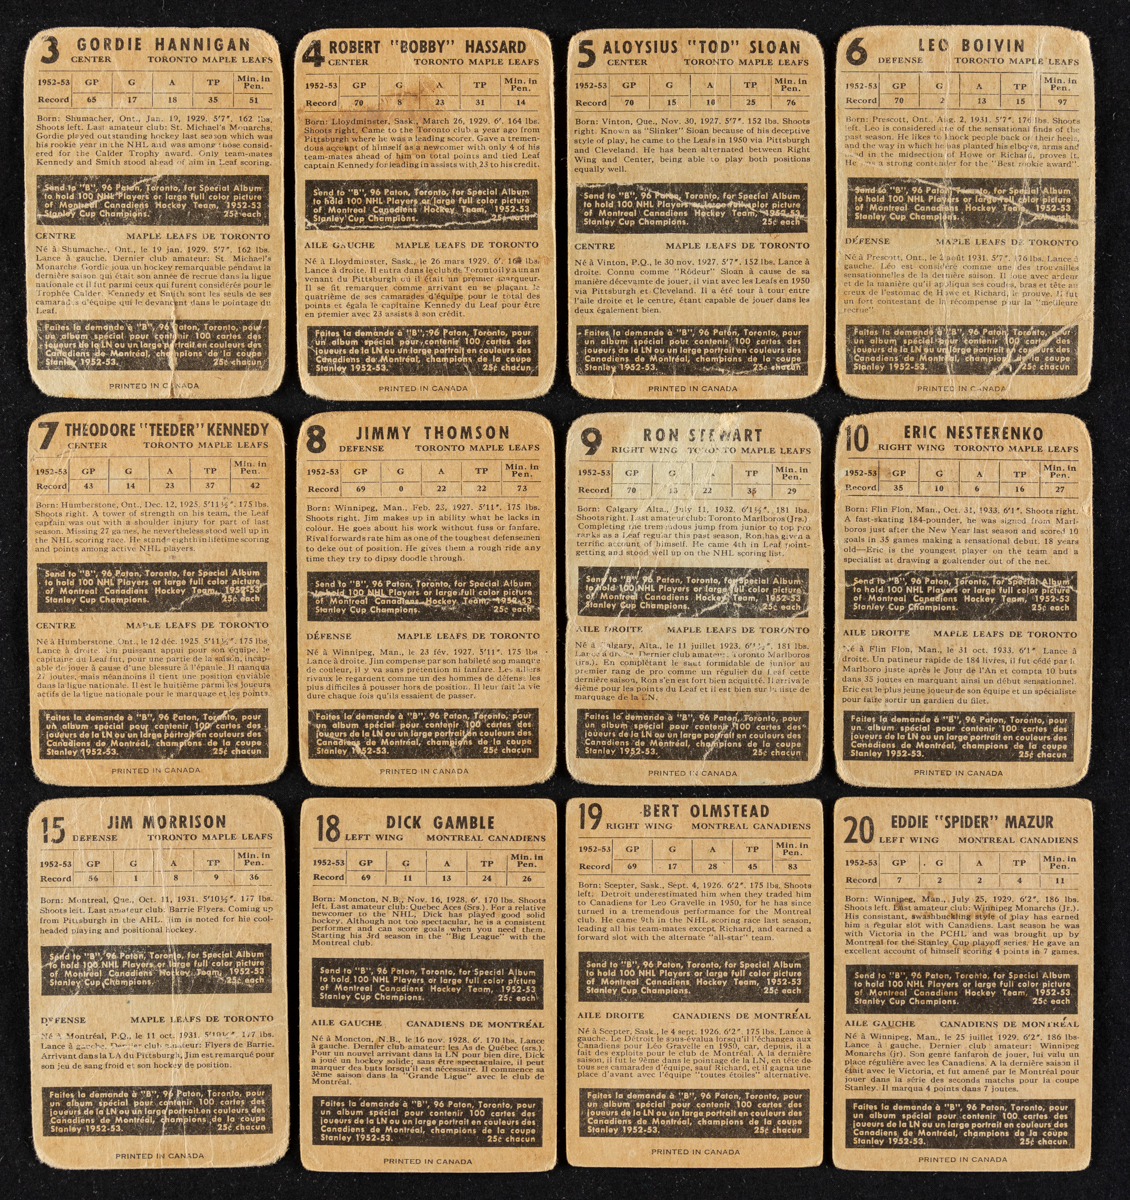 3 GORDIE HANNIGAN
CENTER TORONTO MAPLE LEAFS
1952-53 GP G A TP Min. in Pen.
Record 65 17 18 35 51
Born: Shumacher, Ont., Jan. 19, 1929. 5'7". 162 lbs.
Shoots left. Last amateur club: St. Michael's Monarchs.
Gordie played outstanding hockey last season which was
his rookie year in the NHL and was among those consid-
ered for the Calder Trophy award. Only team-mates
Kennedy and Smith stood ahead of him in Leaf scoring.
Send to "B", 96 Paton, Toronto, for Special Album
to hold 100 NHL Players or large full color picture
of Montreal Canadiens Hockey Team, 1952-53
Stanley Cup Champions. 25¢ each
CENTRE MAPLE LEAFS DE TORONTO
Né à Shumacher, Ont., le 19 jan. 1929. 5'7". 162 lbs.
Lance à gauche. Dernier club amateur: St. Michael's
Monarchs. Gordie joua un hockey remarquable pendant la
dernière saison qui était son année de recrue dans la ligue
nationale et il fut parmi ceux qui furent considérés pour le
Trophée Calder. Kennedy et Smith sont les seuls de ses
camarades d'équipe qui le devançant dans le pointage du
Leaf.
Faites la demande à "B", 96 Paton, Toronto, pour
un album spécial pour contenir 100 cartes des
joueurs de la LN ou un large portrait en couleurs des
Canadiens de Montréal, champions de la coupe
Stanley 1952-53. 25¢ chacun
PRINTED IN CANADA
4 ROBERT "BOBBY" HASSARD
CENTER TORONTO MAPLE LEAFS
1952-53 GP G A TP Min. in Pen.
Record 70 8 23 31 14
Born: Lloydminster, Sask., March 26, 1929. 6'. 164 lbs.
Shoots right. Came to the Toronto club a year ago from
Pittsburgh where he was a leading scorer. Gave a tremen-
dous account of himself as a newcomer with only 4 of his
team-mates ahead of him on total points and tied Leaf
captain Kennedy for leading in assists with 23 to his credit.
Send to "B", 96 Paton, Toronto, for Special Album
to hold 100 NHL Players or large full color picture
of Montreal Canadiens Hockey Team, 1952-53
Stanley Cup Champions. 25¢ each
AILE GAUCHE MAPLE LEAFS DE TORONTO
Né à Lloydminster, Sask., le 26 mars 1929. 6'. 164 lbs.
Lance à droite. Il entra dans le club de Toronto il y a un an
venant du Pittsburgh où il était un premier marqueur.
Il se fit remarquer comme arrivant en se plaçant le
quatrième de ses camarades d'équipe pour le total des
points et égala le capitaine Kennedy du Leaf pour être
en premier avec 23 assists à son crédit.
Faites la demande à "B", 96 Paton, Toronto, pour
un album spécial pour contenir 100 cartes des
joueurs de la LN ou un large portrait en couleurs des
Canadiens de Montréal, champions de la coupe
Stanley 1952-53. 25¢ chacun
PRINTED IN CANADA
5 ALOYSIUS "TOD" SLOAN
CENTER TORONTO MAPLE LEAFS
1952-53 GP G A TP Min. in Pen.
Record 70 15 10 25 76
Born: Vinton, Que., Nov. 30, 1927. 5'7". 152 lbs. Shoots
right. Known as "Slinker" Sloan because of his deceptive
style of play, he came to the Leafs in 1950 via Pittsburgh
and Cleveland. He has been alternated between Right
Wing and Center, being able to play both positions
equally well.
Send to "B", 96 Paton, Toronto, for Special Album
to hold 100 NHL Players or large full color picture
of Montreal Canadiens Hockey Team, 1952-53
Stanley Cup Champions. 25¢ each
CENTRE MAPLE LEAFS DE TORONTO
Né à Vinton, P.Q., le 30 nov. 1927. 5'7". 152 lbs. Lance à
droite. Connu comme "Rôdeur" Sloan à cause de sa
manière décevante de jouer, il vint avec les Leafs en 1950
via Pittsburgh et Cleveland. Il a été tour à tour entre
l'aile droite et le centre, étant capable de jouer dans les
deux également bien.
Faites la demande à "B", 96 Paton, Toronto, pour
un album spécial pour contenir 100 cartes des
joueurs de la LN ou un large portrait en couleurs des
Canadiens de Montréal, champions de la coupe
Stanley 1952-53. 25¢ chacun
PRINTED IN CANADA
6 LEO BOIVIN
DEFENSE TORONTO MAPLE LEAFS
1952-53 GP G A TP Min. in Pen.
Record 70 2 13 15 97
Born: Prescott, Ont., Aug. 2, 1931. 5'7". 176 lbs. Shoots
left. Leo is considered one of the sensational finds of the
past season. He likes to knock people back on their heels,
and the way in which he was planted his elbows, arms and
head in the midsection of Howe or Richard, proves it.
He was a strong contender for the "Best rookie award".
Send to "B", 96 Paton, Toronto, for Special Album
to hold 100 NHL Players or large full color picture
of Montreal Canadiens Hockey Team, 1952-53
Stanley Cup Champions. 25¢ each
DÉFENSE MAPLE LEAFS DE TORONTO
Né à Prescott, Ont., le 2 août 1931. 5'7". 176 lbs. Lance à
gauche. Léo est considéré comme une des trouvailles
sensationnelles de la dernière saison. Il joue avec ardeur
et de la manière qu'il appliqua ses coudes, bras et tête au
creux de l'estomac de Howe et Richard, le prouve. Il fut
un fort contestant de la récompense pour la "meilleure
recrue"
Faites la demande à "B", 96 Paton, Toronto, pour
un album spécial pour contenir 100 cartes des
joueurs de la LN ou un large portrait en couleurs des
Canadiens de Montréal, champions de la coupe
Stanley 1952-53. 25¢ chacun
PRINTED IN CANADA
7 THEODORE "TEEDER" KENNEDY
CENTER TORONTO MAPLE LEAFS
1952-53 GP G A TP Min. in Pen.
Record 43 14 23 37 42
Born: Humberstone, Ont., Dec. 12, 1925. 5'11½". 175 lbs.
Shoots right. A tower of strength on his team, the Leaf
captain was out with a shoulder injury for part of last
season. Missing 27 games, he nevertheless stood well up in
the NHL scoring race. He stands eighth in lifetime scoring
and points among active NHL players.
Send to "B", 96 Paton, Toronto, for Special Album
to hold 100 NHL Players or large full color picture
of Montreal Canadiens Hockey Team, 1952-53
Stanley Cup Champions. 25¢ each
CENTRE MAPLE LEAFS DE TORONTO
Né à Humberstone, Ont., le 12 déc. 1925. 5'11½". 175 lbs.
Lance à droite. Un puissant appui pour son équipe, le
capitaine du Leaf fut, pour une partie de la saison, incap-
able de jouer à cause d'une blessure à l'épaule. Il manqua
27 joutes, mais néanmoins il tient une position enviable
dans la ligue nationale. Il est le huitième parmi les joueurs
actifs de la ligue nationale pour le marquage et les points.
Faites la demande à "B", 96 Paton, Toronto, pour
un album spécial pour contenir 100 cartes des
joueurs de la LN ou un large portrait en couleurs des
Canadiens de Montréal, champions de la coupe
Stanley 1952-53. 25¢ chacun
PRINTED IN CANADA
8 JIMMY THOMSON
DEFENSE TORONTO MAPLE LEAFS
1952-53 GP G A TP Min. in Pen.
Record 69 0 22 22 73
Born: Winnipeg, Man., Feb. 23, 1927. 5'11". 175 lbs.
Shoots right. Jim makes up in ability what he lacks in
colour. He goes about his work without fuss or fanfare.
Rival forwards rate him as one of the toughest defensemen
to deke out of position. He gives them a rough ride any
time they try to dipsy doodle through.
Send to "B", 96 Paton, Toronto, for Special Album
to hold 100 NHL Players or large full color picture
of Montreal Canadiens Hockey Team, 1952-53
Stanley Cup Champions. 25¢ each
DÉFENSE MAPLE LEAFS DE TORONTO
Né à Winnipeg, Man., le 23 fév. 1927. 5'11". 175 lbs
Lance à droite. Jim compense par son habileté son manque
de couleur, il y va sans pretention ni fanfare. Les ailiers
rivaux le regardent comme un des hommes de défense les
plus difficiles à pousser hors de position. Il leur fait la vie
dure chaque fois qu'ils essaient de passer.
Faites la demande à "B", 96 Paton, Toronto, pour
un album spécial pour contenir 100 cartes des
joueurs de la LN ou un large portrait en couleurs des
Canadiens de Montréal, champions de la coupe
Stanley 1952-53. 25¢ chacun
PRINTED IN CANADA
9 RON STEWART
RIGHT WING TORONTO MAPLE LEAFS
1952-53 GP G TP Min. in Pen.
Record 70 13 22 35 29
Born: Calgary Alta., July 11, 1932. 6'1½". 181 lbs.
Shoots right. Last amateur club: Toronto Marlboros (Jrs.)
Completing the tremendous jump from junior to top pro
ranks as a Leaf regular this past season, Ron has given a
terrific account of himself. He came 4th in Leaf point-
getting and stood well up on the NHL scoring list.
Send to "B", 96 Paton, Toronto, for Special Album
to hold 100 NHL Players or large full color picture
of Montreal Canadiens Hockey Team, 1952-53
Stanley Cup Champions. 25¢ each
AILE DROITE MAPLE LEAFS DE TORONTO
Né à Calgary, Alta., le 11 juillet 1923. 6'1½". 181 lbs.
Lance à droite. Dernier club amateur: Toronto Marlboros
(jrs.). En complétant le saut formidable de junior au
premier rang de pro comme un régulier du Leaf cette
dernière saison, Ron s'en est fort bien acquitté. Il arriva le
4ième pour les points du Leaf et il est bien sur la liste de
marquage de la LN.
Faites la demande à "B", 96 Paton, Toronto, pour
un album spécial pour contenir 100 cartes des
joueurs de la LN ou un large portrait en couleurs des
Canadiens de Montréal, champions de la coupe
Stanley 1952-53. 25¢ chacun
PRINTED IN CANADA
10 ERIC NESTERENKO
RIGHT WING TORONTO MAPLE LEAFS
1952-53 GP G A TP Min. in Pen.
Record 35 10 6 16 27
Born: Flin Flon, Man., Oct. 31, 1933. 6'1". Shoots right.
A fast-skating 184-pounder, he was signed from Marl-
boros just after the New Year last season and scored 10
goals in 35 games making a sensational debut. 18 years
old—Eric is the youngest player on the team and a
specialist at drawing a goaltender out of the net.
Send to "B", 96 Paton, Toronto, for Special Album
to hold 100 NHL Players or large full color picture
of Montreal Canadiens Hockey Team, 1952-53
Stanley Cup Champions. 25¢ each
AILE DROITE MAPLE LEAFS DE TORONTO
Né à Flin Flon, Man., le 31 oct. 1933. 6'1" Lance à
droite. Un patineur rapide de 184 livres, il fut cédé par le
Marlboro juste après le Jour de l'An et compta 10 buts
dans 35 joutes en marquant ainsi un début sensationnel.
Eric est le plus jeune joueur de son équipe et un spécialiste
pour faire sortir un gardien du filet.
Faites la demande à "B", 96 Paton, Toronto, pour
un album spécial pour contenir 100 cartes des
joueurs de la LN ou un large portrait en couleurs des
Canadiens de Montréal, champions de la coupe
Stanley 1952-53. 25¢ chacun
PRINTED IN CANADA
15 JIM MORRISON
DEFENSE TORONTO MAPLE LEAFS
1952-53 GP G A TP Min. in Pen.
Record 56 1 8 9 36
Born: Montreal, Que., Oct. 11, 1931. 5'10½". 177 lbs.
Shoots left. Last amateur club. Barrie Flyers. Coming up
from Pittsburgh in the AHL. Jim is noted for his cool-
headed playing and positional hockey.
Send to "B", 96 Paton, Toronto, for Special Album
to hold 100 NHL Players or large full color picture
of Montreal Canadiens Hockey Team, 1952-53
Stanley Cup Champions. 25¢ each
DÉFENSE MAPLE LEAFS DE TORONTO
Né à Montréal, P.Q., le 11 oct. 1931. 5'10½". 177 lbs.
Lance à gauche. Dernier club amateur: Flyers de Barrie.
Arrivant dans la LA du Pittsburgh, Jim est remarqué pour
son jeu de sang froid et son hockey de position.
Faites la demande à "B", 96 Paton, Toronto, pour
un album spécial pour contenir 100 cartes des
joueurs de la LN ou un large portrait en couleurs des
Canadiens de Montréal, champions de la coupe
Stanley 1952-53. 25¢ chacun
PRINTED IN CANADA
18 DICK GAMBLE
LEFT WING MONTREAL CANADIENS
1952-53 GP G A TP Min. in Pen.
Record 69 11 13 24 26
Born: Moncton, N.B., Nov. 16, 1928. 6'. 170 lbs. Shoots
left. Last amateur club: Quebec Aces (Srs.). For a relative
newcomer to the NHL, Dick has played good solid
hockey. Although not too spectacular, he is a consistent
performer and can score goals when you need them.
Starting his 3rd season in the "Big League" with the
Montreal club.
Send to "B", 96 Paton, Toronto, for Special Album
to hold 100 NHL Players or large full color picture
of Montreal Canadiens Hockey Team, 1952-53
Stanley Cup Champions. 25¢ each
AILE GAUCHE CANADIENS DE MONTRÉAL
Né à Moncton, N.B., le 16 nov. 1928. 6'. 170 lbs. Lance
gauche. Dernier club amateur: les As de Québec (srs.).
Pour un nouvel arrivant dans la LN pour bien dire, Dick
a joué un hockey solide; sans être spectaculaire, il peut
marquer des buts lorsqu'il est nécessaire. Il commence sa
3ème saison dans la "Grande Ligue" avec le club de
Montréal.
Faites la demande à "B", 96 Paton, Toronto, pour
un album spécial pour contenir 100 cartes des
joueurs de la LN ou un large portrait en couleurs des
Canadiens de Montréal, champions de la coupe
Stanley 1952-53. 25¢ chacun
PRINTED IN CANADA
19 BERT OLMSTEAD
RIGHT WING MONTREAL CANADIENS
1952-53 GP G A TP Min. in Pen.
Record 69 17 28 45 83
Born: Scepter, Sask., Sept. 4, 1926. 6'2". 175 lbs. Shoots
left. Detroit underestimated him when they traded him
to Canadiens for Leo Gravelle in 1950, for he has since
turned in a tremendous performance for the Montreal
club. He came 9th in the NHL scoring race last season,
leading all his team-mates except Richard, and earned a
forward slot with the alternate "all-star" team.
Send to "B", 96 Paton, Toronto, for Special Album
to hold 100 NHL Players or large full color picture
of Montreal Canadiens Hockey Team, 1952-53
Stanley Cup Champions. 25¢ each
AILE DROITE CANADIENS DE MONTRÉAL
Né à Scepter, Sask., le 4 sept. 1926. 6'2". 175 lbs. Lance à
gauche. Le Détroit le sous-évalua lorsqu'il l'échangea aux
Canadiens pour Léo Gravelle en 1950, car, depuis, il a
fait des exploits pour le club de Montréal. A la dernière
saison, il fut le 9ème dans le pointage de la LN, en tête de
tous ses camarades d'équipe, sauf Richard, et il gagna une
place d'avant avec l'équipe "toutes étoiles" alternative.
Faites la demande à "B", 96 Paton, Toronto, pour
un album spécial pour contenir 100 cartes des
joueurs de la LN ou un large portrait en couleurs des
Canadiens de Montréal, champions de la coupe
Stanley 1952-53. 25¢ chacun
PRINTED IN CANADA
20 EDDIE "SPIDER" MAZUR
LEFT WING MONTREAL CANADIENS
1952-53 GP G A TP Min. in Pen.
Record 7 2 2 4 11
Born: Winnipeg, Man., July 25, 1929. 6'2". 186 lbs.
Shoots left. Last amateur club: Winnipeg Monarchs (Jr.).
His consistent, swashbuckling style of play has earned
him a regular slot with Canadiens. Last season he was
with Victoria in the PCHL and was brought up by
Montreal for the Stanley Cup playoff series. He gave an
excellent account of himself scoring 4 points in 7 games.
Send to "B", 96 Paton, Toronto, for Special Album
to hold 100 NHL Players or large full color picture
of Montreal Canadiens Hockey Team, 1952-53
Stanley Cup Champions. 25¢ each
AILE GAUCHE CANADIENS DE MONTRÉAL
Né à Winnipeg, Man., le 25 juillet 1929. 6'2". 186 lbs
Lance à gauche. Dernier club amateur: Winnipeg
Monarchs (jr). Son genre fanfaron de jouer, lui valu un
place régulière avec les Canadiens. A la dernière saison il
était avec le Victoria, et fut amené par le Montréal pour
jouer dans la série des seconds matchs pour la coupe
Stanley. Il marqua 4 points dans 7 joutes.
Faites la demande à "B", 96 Paton, Toronto, pour
un album spécial pour contenir 100 cartes des
joueurs de la LN ou un large portrait en couleurs des
Canadiens de Montréal, champions de la coupe
Stanley 1952-53. 25¢ chacun
PRINTED IN CANADA